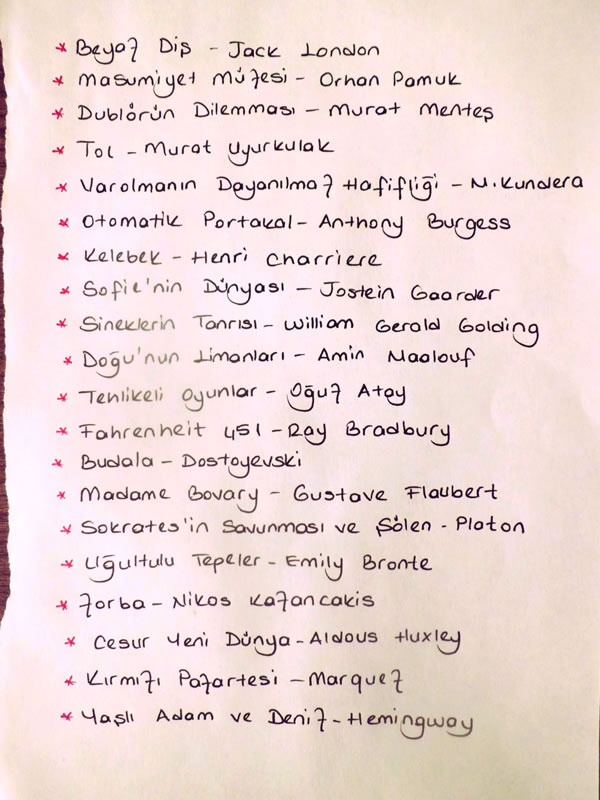 * Beyaz Diş - Jack London
* Masumiyet Müzesi - Orhan Pamuk
* Dublörün Dilemması - Murat Menteş
* Tol - Murat Uyurkulak
* Varolmanın Dayanılmaz Hafifliği - M. Kundera
* Otomatik Portakal - Anthony Burgess
* Kelebek - Henri Charriere
* Sofie'nin Dünyası - Jostein Gaarder
* Sineklerin Tanrısı - William Gerald Golding
* Doğu'nun Limanları - Amin Maalouf
* Tehlikeli Oyunlar - Oğuz Atay
* Fahrenheit 451 - Ray Bradbury
* Budala - Dostoyevski
* Madame Bovary - Gustave Flaubert
* Sokrates'in Savunması ve Şölen - Platon
* Uğultulu Tepeler - Emily Bronte
* Zorba - Nikos Kazancakis
* Cesur Yeni Dünya - Aldous Huxley
* Kırmızı Pazartesi - Marquez
* Yaşlı Adam ve Deniz - Hemingway